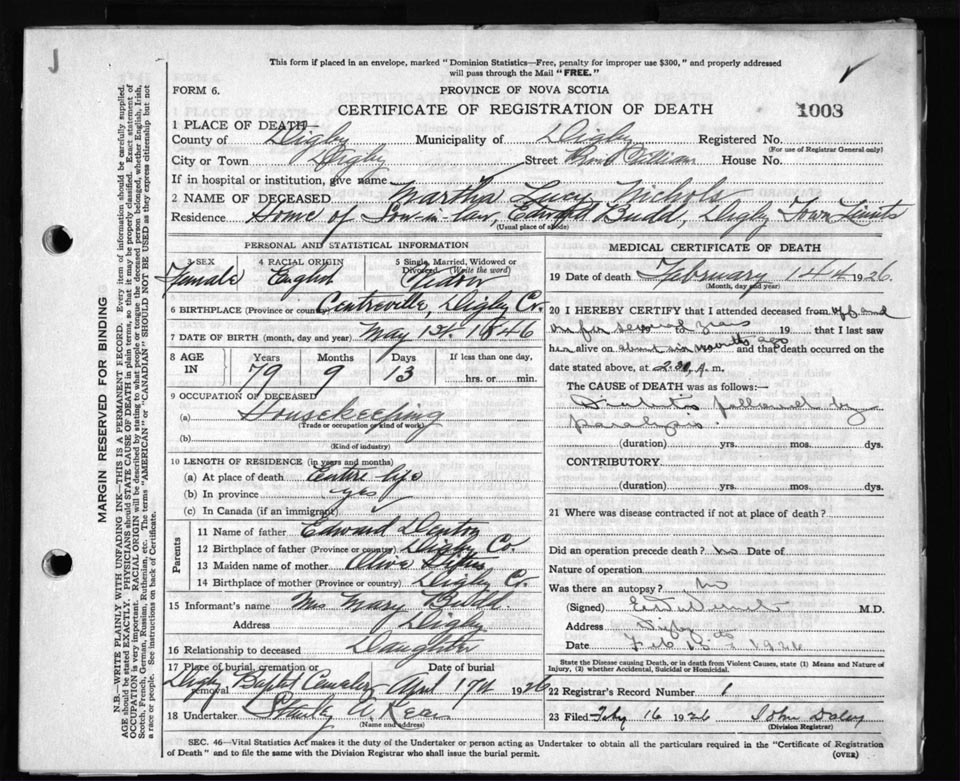 J
This form if placed in an envelope, marked "Dominion Statistics—Free, penalty for improper use $300," and properly addressed
will pass through the Mail "FREE."
FORM 6.
PROVINCE OF NOVA SCOTIA
CERTIFICATE OF REGISTRATION OF DEATH
1003
1 PLACE OF DEATH—
County of Digby Municipality of Digby Registered No.
(For use of Registrar General only)
City or Town Digby Street House No.
If in hospital or institution, give name
2 NAME OF DECEASED Martha Lucy Nichols
Residence Home of Son-in-law, Edward Budd, Digby Town Limits
(Usual place of abode)
PERSONAL AND STATISTICAL INFORMATION
3 SEX 4 RACIAL ORIGIN 5 Single, Married, Widowed or
Divorced (Write the word)
Female English Widow
6 BIRTHPLACE (Province or country) Centreville, Digby Co.
7 DATE OF BIRTH (month, day and year) May 1st. 1846
8 AGE IN Years Months Days If less than one day,
79 9 13 hrs. or min.
9 OCCUPATION OF DECEASED
(a) Housekeeping
(Trade or occupation or kind of work)
(b)
(Kind of industry)
10 LENGTH OF RESIDENCE (in years and months)
(a) At place of death Entire life
(b) In province yes
(c) In Canada (if an immigrant)
Parents
11 Name of father Edward Denton
12 Birthplace of father (Province or country) Digby Co.
13 Maiden name of mother Olive
14 Birthplace of mother (Province or country) Digby Co.
15 Informant's name Mrs Mary Budd.
Address Digby
16 Relationship to deceased Daughter
17 Place of burial, cremation or removal Date of burial
Digby Baptist Cemetery April 17th 1926
18 Undertaker Stanley A.
(Name and address)
MEDICAL CERTIFICATE OF DEATH
19 Date of death February 14th 1926.
(Month, day and year)
20 I HEREBY CERTIFY that I attended deceased from off and
on for several years 19 that I last saw
her alive on about six months ago and that death occurred on the
date stated above, at m.
The CAUSE OF DEATH was as follows:—
followed by
paralysis.
(duration) yrs. mos. dys.
CONTRIBUTORY.
(duration) yrs. mos. dys.
21 Where was disease contracted if not at place of death?
Did an operation precede death? no Date of
Nature of operation
Was there an autopsy? no
(Signed) M.D.
Address Digby
Date Feb 15th 1926
State the Disease causing Death, or in death from Violent Causes, state (1) Means and Nature of
Injury, (2) whether Accidental, Suicidal or Homicidal.
22 Registrar's Record Number 1
23 Filed Feby 16 1926 John Daley
(Division Registrar)
SEC. 46—Vital Statistics Act makes it the duty of the Undertaker or person acting as Undertaker to obtain all the particulars required in the "Certificate of Registration
of Death" and to file the same with the Division Registrar who shall issue the burial permit.
(OVER)
MARGIN RESERVED FOR BINDING
N.B.—WRITE PLAINLY WITH UNFADING INK—THIS IS A PERMANENT RECORD. Every item of information should be carefully supplied.
AGE should be stated EXACTLY. PHYSICIANS should STATE CAUSE OF DEATH in plain terms, so that it may be properly classified. Exact statement of
OCCUPATION is very important. RACIAL ORIGIN will be described by stating to what people or tongue the deceased person belonged, whether English, Irish,
Scotch, French, German, Russian, Ruthenian, etc. The terms "AMERICAN" or "CANADIAN" SHOULD NOT BE USED as they express citizenship but not
a race or people. See instructions on back of Certificate.